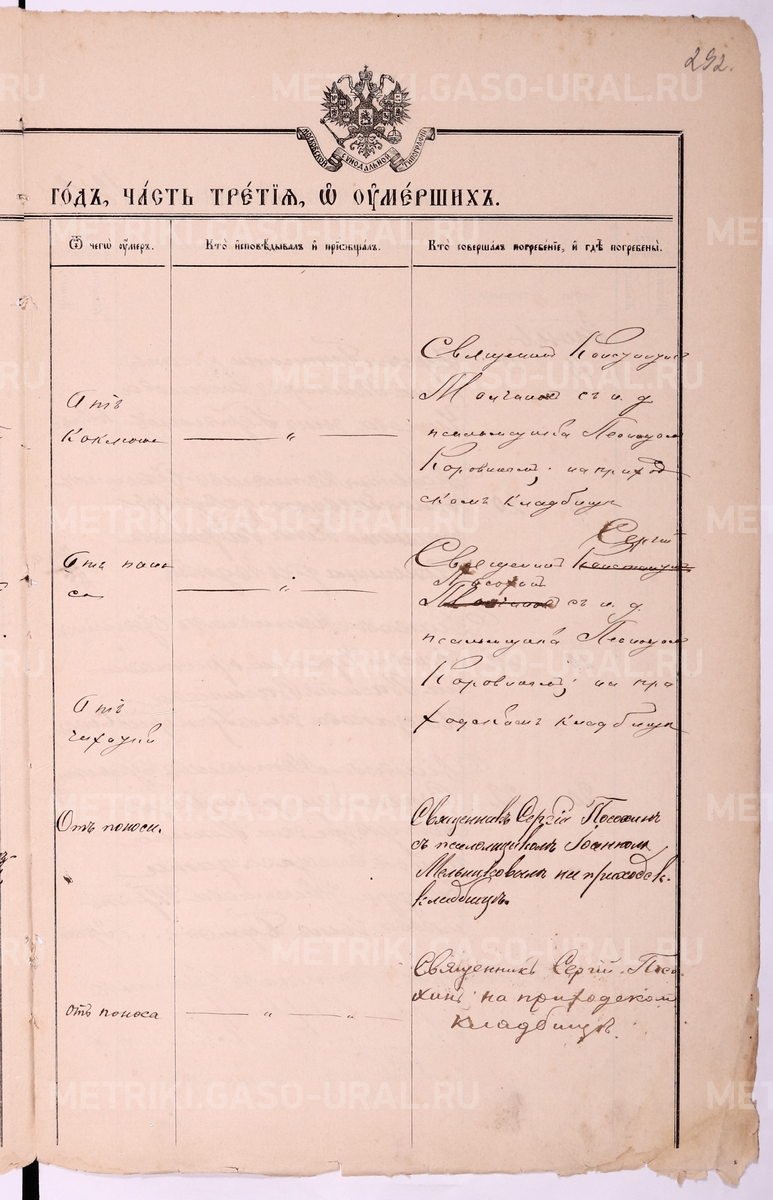 292.
МОСКОВСКОЙ СѴНОДАЛЬНОЙ ТИПОГРАФІИ
ГО́ДЪ, ЧА́СТЬ ТРЕ́ТІѦ, Ѽ ОУ҆МЕ́РШИХЪ.
Ѿ чегѡ̀ оу҆́меръ.
Кто̀ и҆сповѣ́дывалъ и҆ прїѡбща́лъ.
Кто̀ соверша́лъ погребе́нїе, и҆ гдѣ̀ погребены̀.
Отъ
Коклюша
Священникъ
съ и. д.
псаломщика
Коровинымъ; на приход
скомъ кладбищѣ
Отъ поно
са
Сергій
Священникъ
Посохин
съ и. д.
псаломщика
Коровинымъ; на при
ходскомъ кладбищѣ
Отъ
чахотки
Отъ поноса.
Священникъ Сергій Посохинъ
съ псаломщикомъ Іоанномъ
Мельниковымъ на приходск.
кладбищѣ.
Отъ поноса
Священникъ Сергій Посо
хинъ на приходском
кладбищѣ.
METRIKI.GASO-URAL.RU